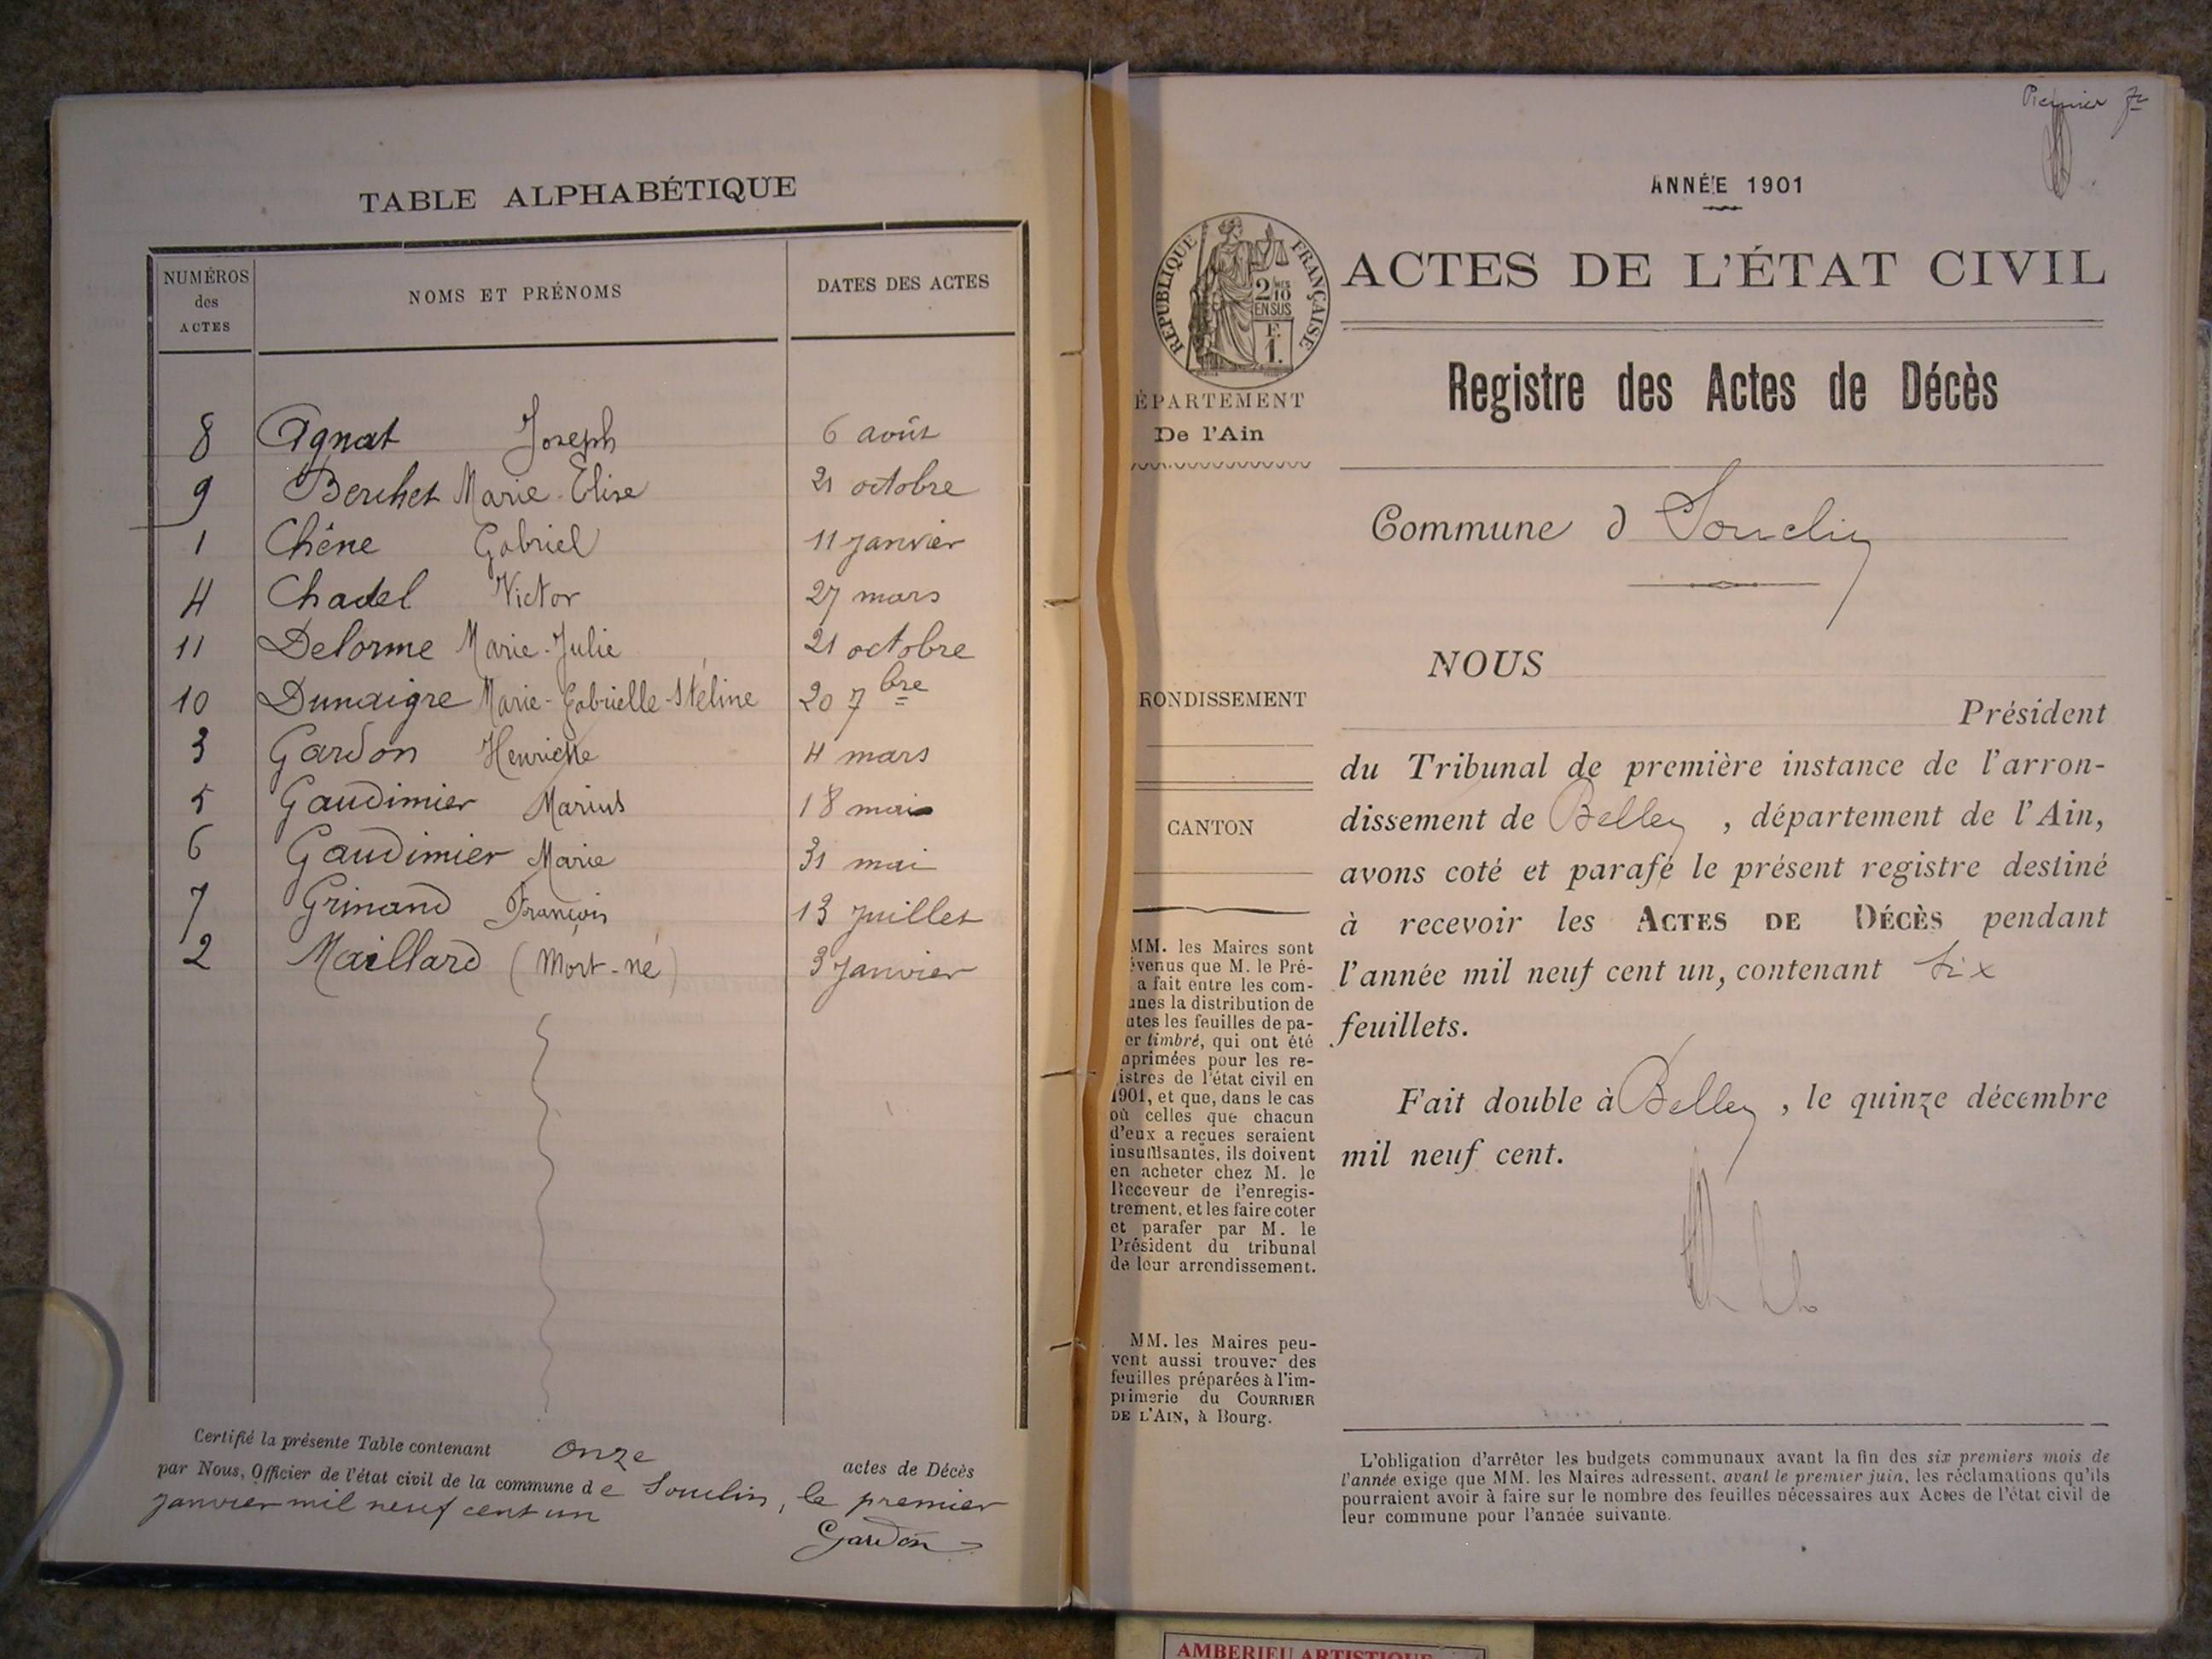 TABLE ALPHABÉTIQUE
NUMÉROS des ACTES
NOMS ET PRÉNOMS
DATES DES ACTES
8 Agnat Joseph 6 août
9 Berchet Marie-Elise 21 octobre
1 Chêne Gabriel 11 janvier
4 Chadel Victor 27 mars
11 Delorme Marie-Julie 21 octobre
10 Dunaigre Marie-Gabrielle-Stéline 20 7bre
3 Gardon Henriette 4 mars
5 Gaudimier Marius 18 mai
6 Gaudimier Marie 31 mai
7 Grinand François 13 juillet
2 Maillard (Mort-né) 3 janvier
Certifié la présente Table contenant onze actes de Décès
par Nous, Officier de l'état civil de la commune de Souclin, le premier
janvier mil neuf cent un
Gardon
Premier
ANNÉE 1901
RÉPUBLIQUE FRANÇAISE
2/10
EN SUS
F.
1.
ACTES DE L'ÉTAT CIVIL
ÉPARTEMENT
De l'Ain
Registre des Actes de Décès
Commune d Souclin
NOUS
RONDISSEMENT
Président
du Tribunal de première instance de l'arron-
dissement de Belley, département de l'Ain,
avons coté et parafé le présent registre destiné
à recevoir les ACTES DE DÉCÈS pendant
l'année mil neuf cent un, contenant six
feuillets.
Fait double à Belley, le quinze décembre
mil neuf cent.
CANTON
MM. les Maires sont
évenus que M. le Pré-
a fait entre les com-
unes la distribution de
utes les feuilles de pa-
er timbré, qui ont été
mprimées pour les re-
istres de l'état civil en
1901, et que, dans le cas
où celles que chacun
d'eux a reçues seraient
insuffisantes, ils doivent
en acheter chez M. le
Receveur de l'enregis-
trement, et les faire coter
et parafer par M. le
Président du tribunal
de leur arrondissement.
MM. les Maires peu-
vent aussi trouver des
feuilles préparées à l'im-
primerie du COURRIER
DE L'AIN, à Bourg.
L'obligation d'arrêter les budgets communaux avant la fin des six premiers mois de
l'année exige que MM. les Maires adressent, avant le premier juin, les réclamations qu'ils
pourraient avoir à faire sur le nombre des feuilles nécessaires aux Actes de l'état civil de
leur commune pour l'année suivante.
AMBERIEU ARTISTIQUE